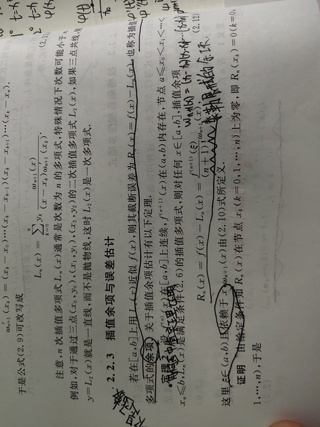 ω_{n+1}(x_k) = (x_k - x_0)…(x_k - x_{k-1})(x_k - x_{k+1})…(x_k - x_n).
于是公式(2.9)可改写成
L_n(x) = \sum_{k=0}^{n} y_k \frac{ω_{n+1}(x)}{(x - x_k)ω'_{n+1}(x_k)}.
注意,n 次插值多项式 L_n(x) 通常是次数为 n 的多项式,特殊情况下次数可能小于
例如,对于通过三点 (x_0,y_0),(x_1,y_1),(x_2,y_2) 的二次插值多项式 L_2(x),如果三点共线,
y=L_2(x) 就是一直线,而不是抛物线,这时 L_2(x) 是一次多项式.
2.2.3 插值余项与误差估计
若在[a,b]上用 L_n(x) 近似 f(x),则其截断误差为 R_n(x)=f(x)-L_n(x),也称为插
多项式的余项.关于插值余项估计有以下定理.
上连续,f^{(n+1)}(x) 在(a,b)内存在,节点 a≤x_0<x_1<…<
x_n≤b,L_n(x) 是满足条件(2.6)的插值多项式,则对任何 x∈[a,b],插值余项
R_n(x) = f(x) - L_n(x) = \frac{f^{(n+1)}(ξ)}{(n+1)!}
(2.12)
这里 ξ∈(a,b) 且依赖于 x,ω_{n+1}(x) 由(2.10)式所定义.
证明 由给定条件知 R_n(x) 在节点 x_k(k=0,1,…,n) 上为零,即 R_n(x_k)=0(k=0,
1,…,n),于是